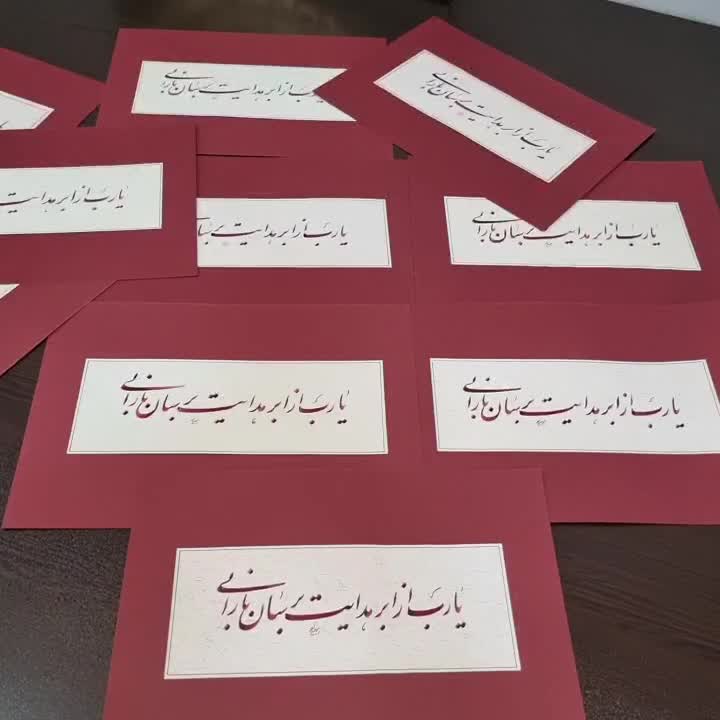 یارب از ابر هدایت برسان بارانی
یارب از ابر هدایت برسان بارانی
یارب از ابر هدایت
یارب از ابر هدایت برسان
یارب از ابر هدایت برسان بارانی
یارب از ابر هدایت برسان بارانی
یارب از ابر هدایت برسان بارانی
یارب از ابر هدایت برسان بارانی